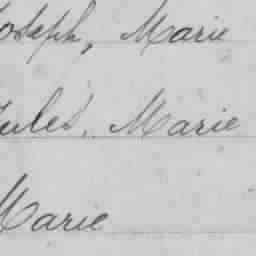 Joseph, Marie
Jules, Marie
Marie